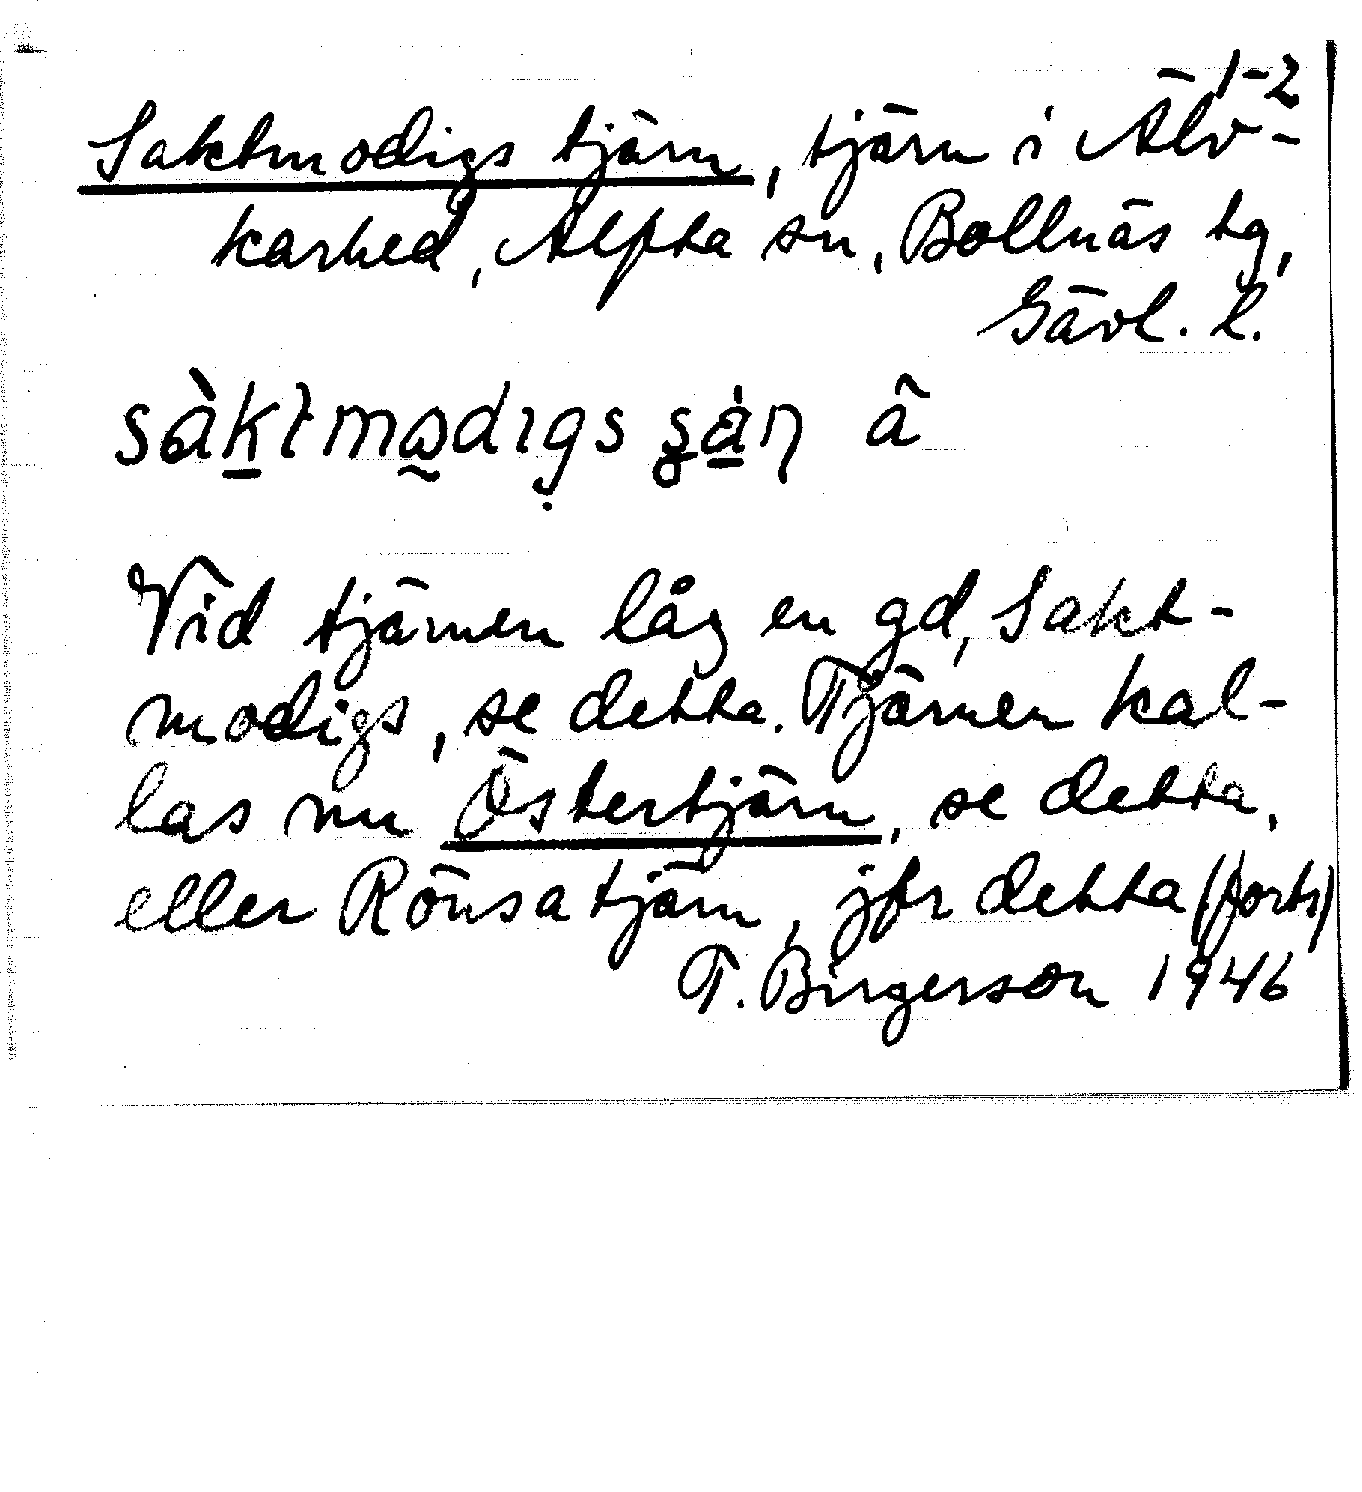 1-2
Saktmodigs tjärn, tjärn i Älv-
karhed, Alfta sn, Bollnäs tg,
Gävl. l.
Vid tjärnen låg en gd, Sakt-
modigs, se detta. Tjärnen kal-
las nu Östertjärn, se detta,
eller Rönsatjärn, jfr detta (forts)
T. Birgerson 1946